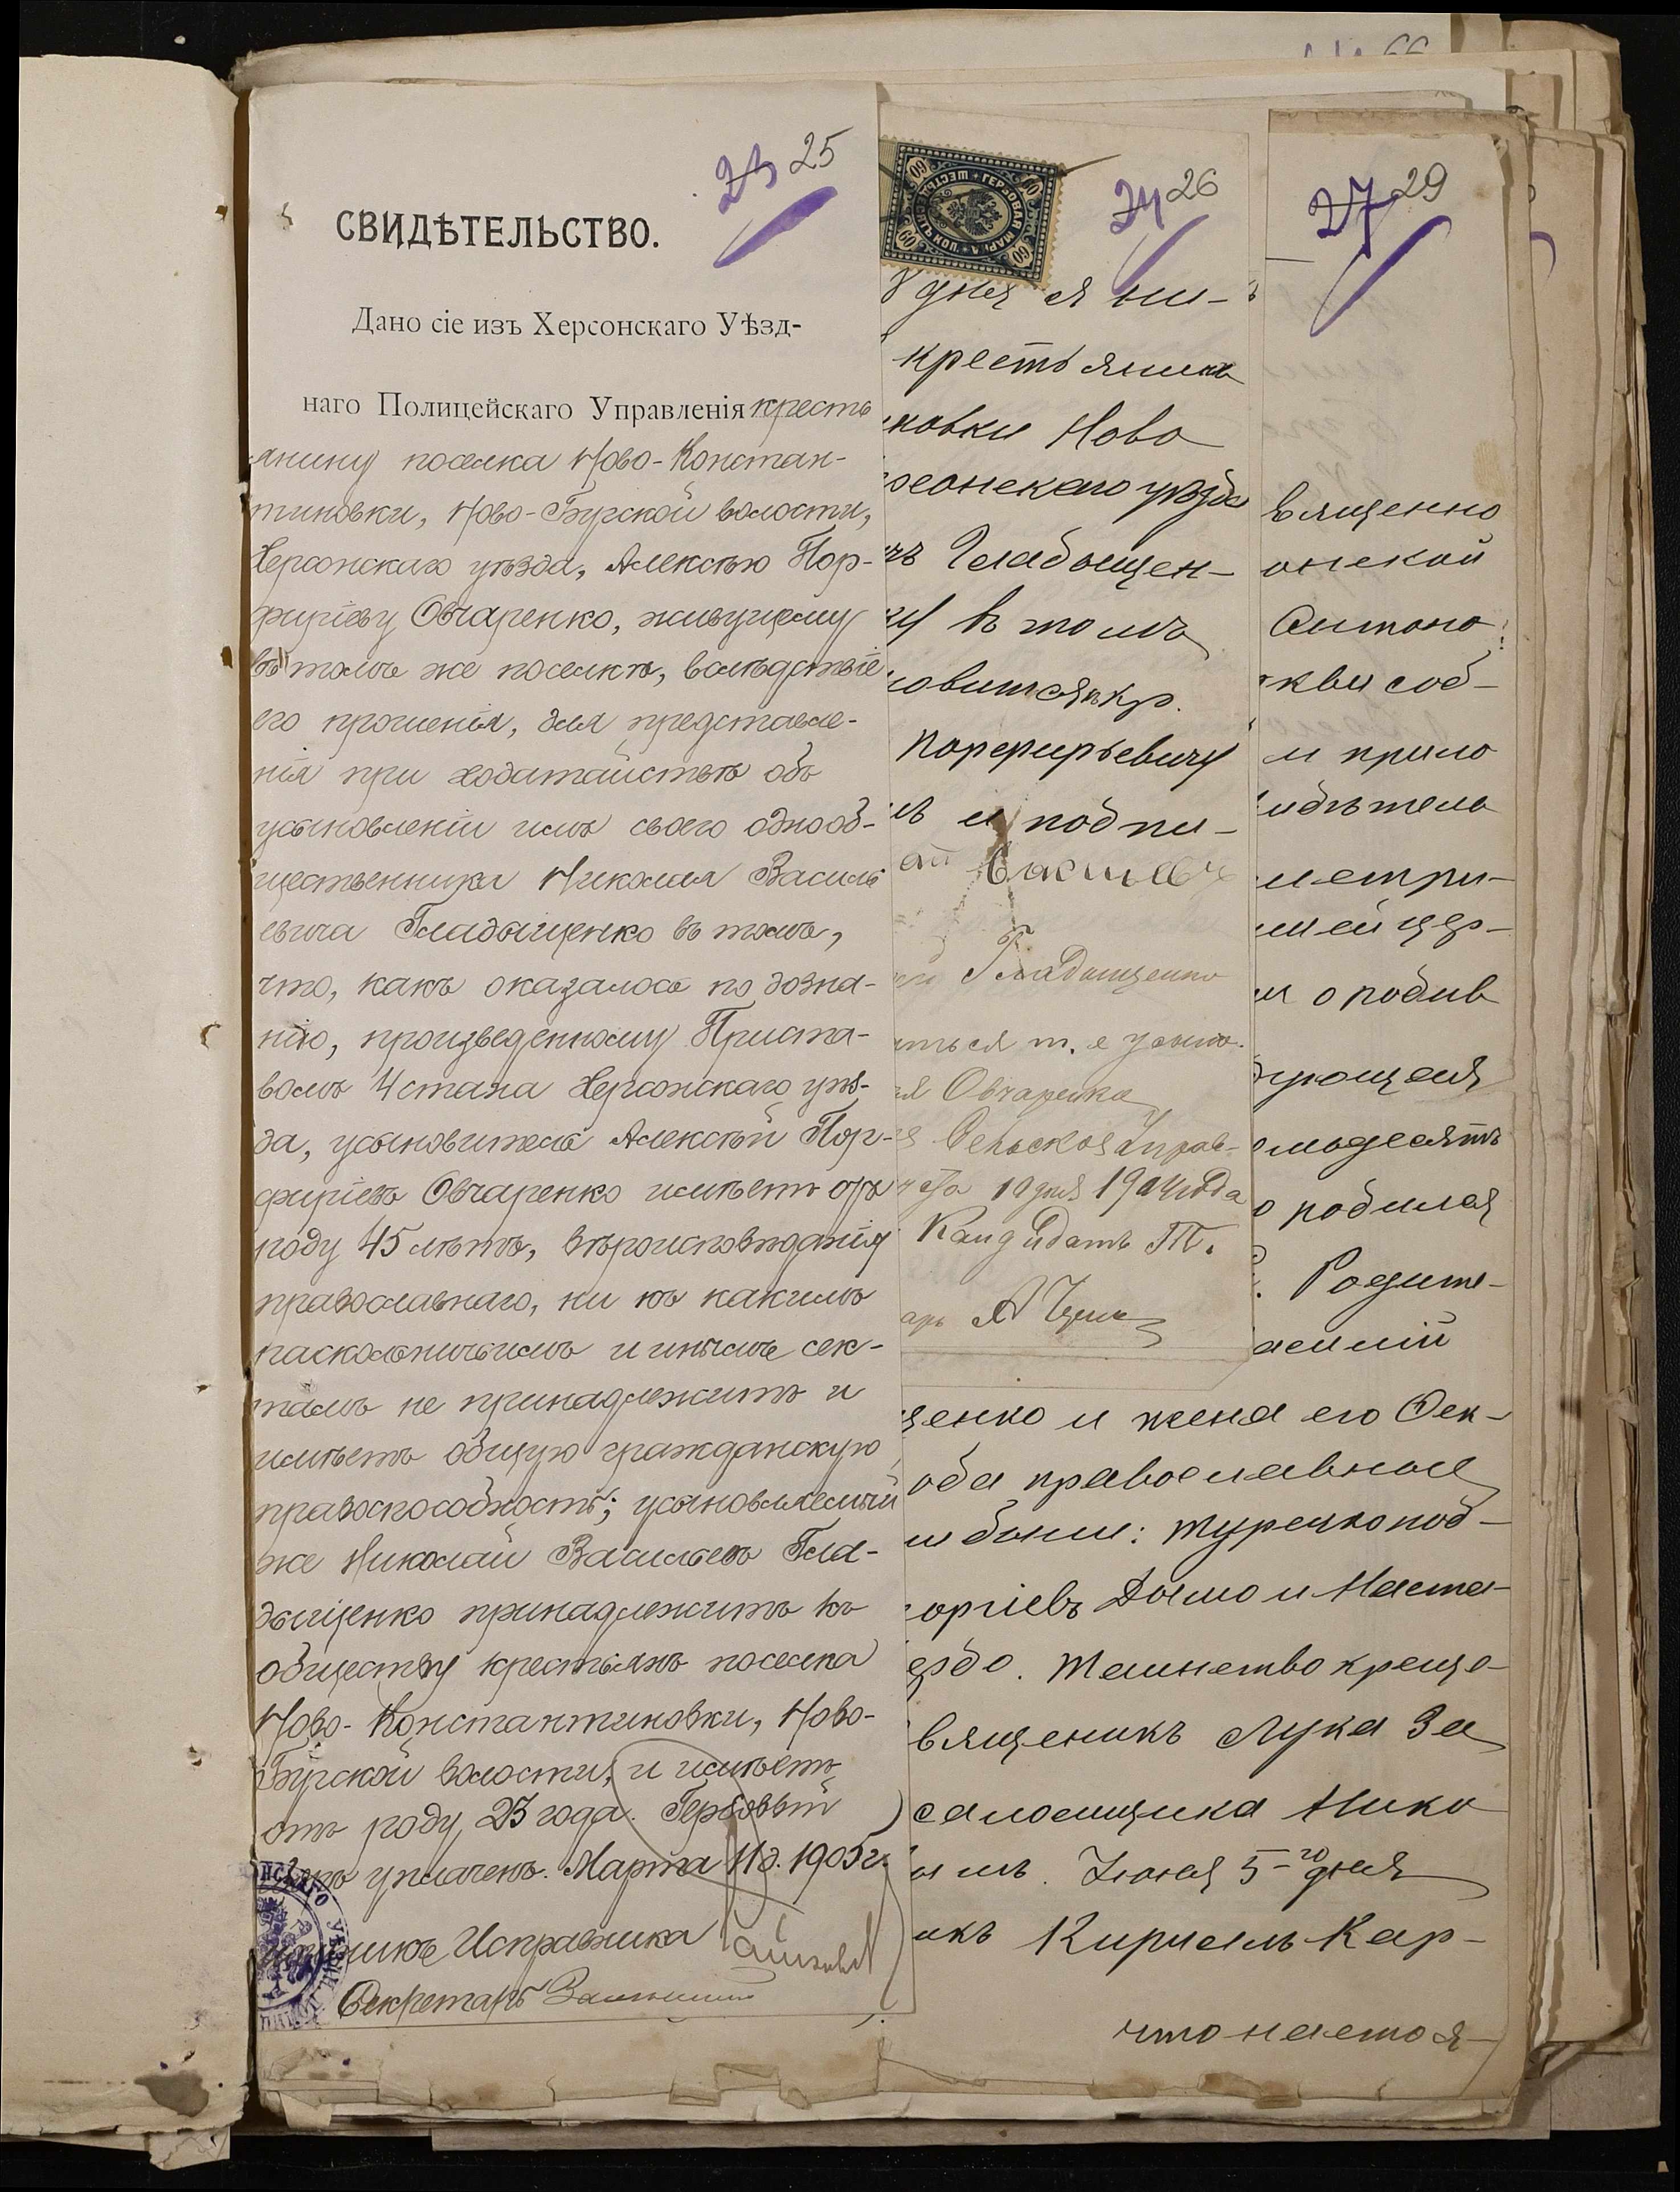 66
23 25
СВИДѢТЕЛЬСТВО.
Дано сіе изъ Херсонскаго Уѣзд-
наго Полицейскаго Управленія кресть
янину поселка Ново-Констан-
тиновки, Ново-Бургской волости,
Херсонскаго уѣзда, Алексѣю Пор-
фиріеву Овчаренко, живущему
въ томъ же поселкѣ, вслѣдствіе
его прошенія, для представле-
нія при ходатайствѣ объ
усыновленіи имъ своего однооб-
щественника Николая Василь
евича Гладыщенко въ томъ,
что, какъ оказалось по дозна-
нію, произведенному Приста-
вомъ 4 стана Херсонскаго уѣз-
да, усыновитель Алексѣй Пор-
фиріевъ Овчаренко имѣетъ отъ
роду 45 лѣтъ, вѣроисповѣданія
православнаго, ни къ какимъ
раскольничьимъ и инымъ сек-
тамъ не принадлежитъ и
имѣетъ общую гражданскую
правоспособность; усыновляемый
же Николай Васильевъ Гла-
дыщенко принадлежитъ къ
обществу крестьянъ поселка
Ново-Константиновки, Ново-
Бургской волости, и имѣетъ
отъ роду 23 года. Гербовый
сборъ уплаченъ. Марта 11 д. 1905 г.
Исправника
Секретарь
24 26
ГЕРБОВАЯ МАРКА
60 60 60 60
дня я ни-
крестьянина
новки Ново
рсонскаго уѣзда
чъ Гладыщен-
въ томъ
новится кр.
Порфирьевичу
и подпи-
Васильев
Гладыщенко
ться т. е усыно.
Овчаренко
Сельское Управ-
10 дня 1904 года
Кандидатъ
арь
27 29
вященно
онской
Антоно
кви соб-
и прило
идѣтель
метри-
шей цер-
о родив
дующая
мьдесятъ
родился
Родите-
асилій
щенко и жена его Фек-
оба православные
и были: турецкопод-
оргіевъ Дымо и Наста-
ербо. Таинство креще-
вященикъ Лука За
саломщика Нико
Іюня 5-го дня
икъ Кириллъ Кар-
что настоя-